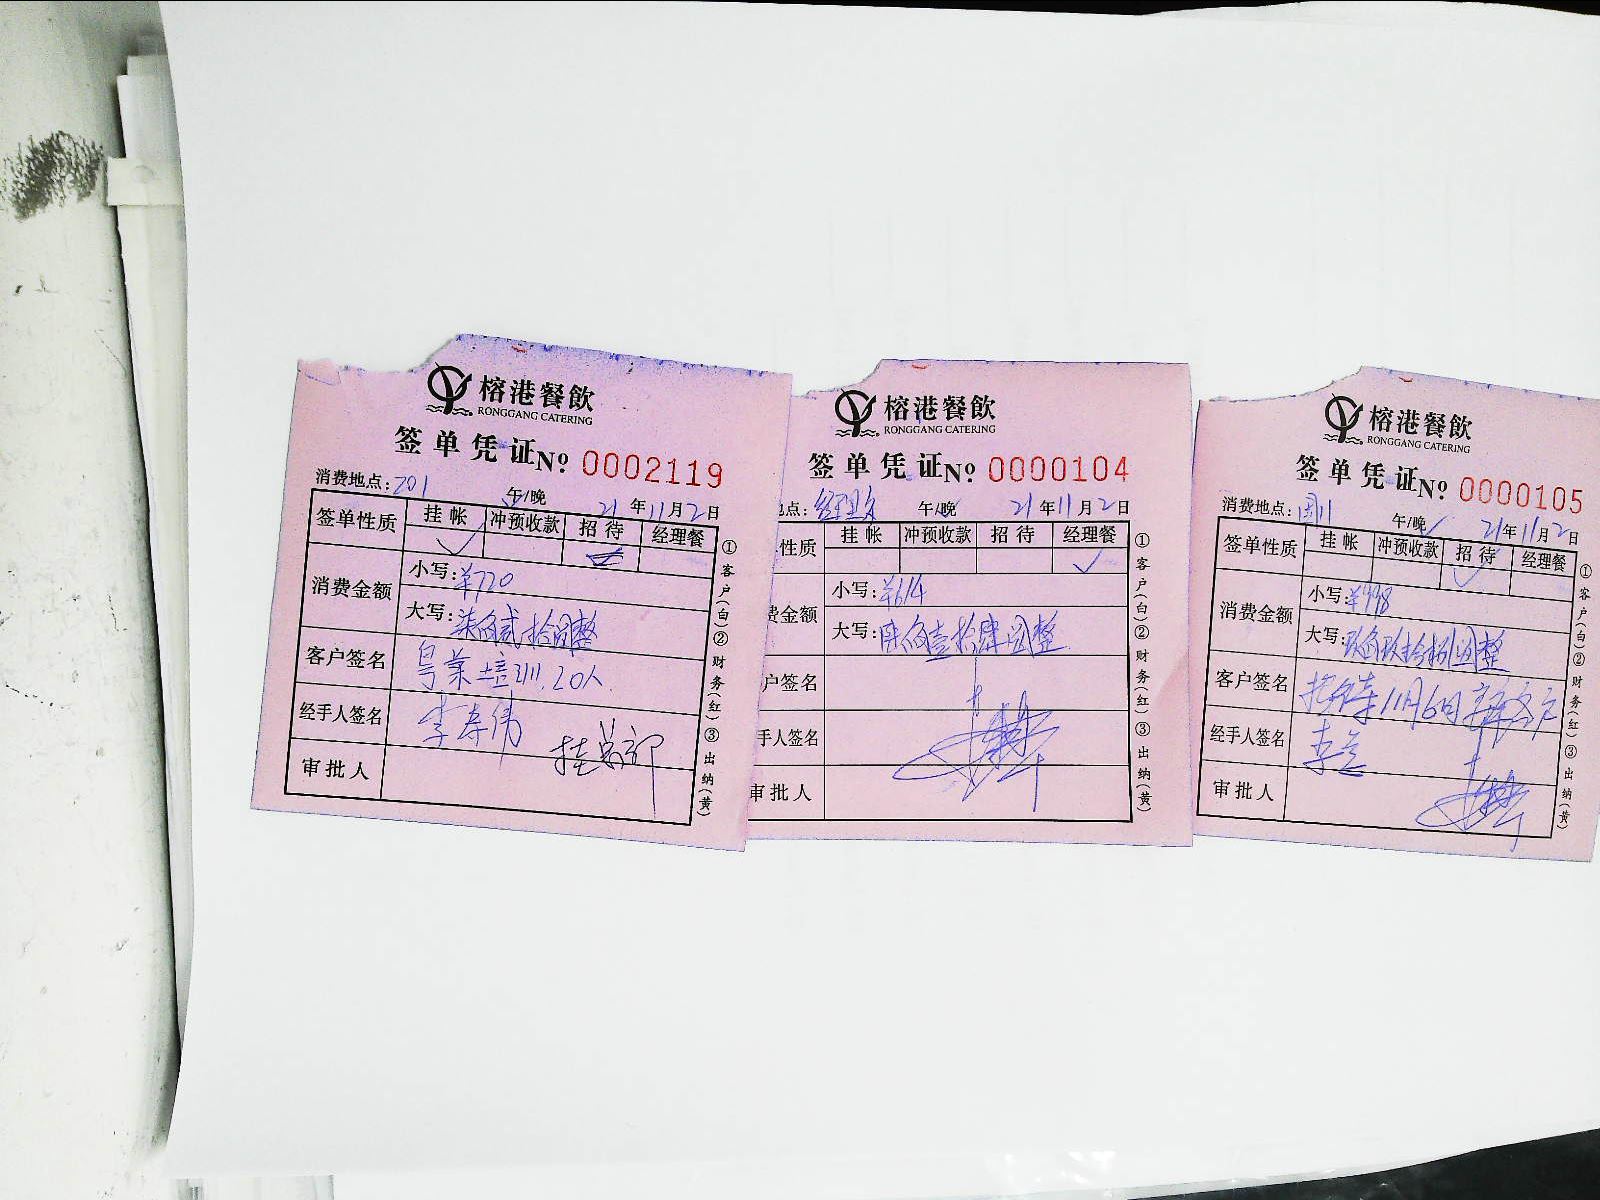 榕港餐飲
RONGGANG CATERING
签单凭证 № 0002119
消费地点: 201 午/晚 21年11月2日
签单性质 挂帐 冲预收款 招待 经理餐
消费金额
小写: ¥720
大写: 柒佰贰拾圆整
客户签名 粤菜培训.20人.
经手人签名
审批人 挂总部
①客户(白)②财务(红)③出纳(黄)
榕港餐飲
RONGGANG CATERING
签单凭证 № 0000104
点: 午/晚 21年11月2日
性质 挂帐 冲预收款 招待 经理餐
费金额
小写: ¥614
大写: 陆佰壹拾肆圆整
户签名
手人签名
审批人
①客户(白)②财务(红)③出纳(黄)
榕港餐飲
RONGGANG CATERING
签单凭证 № 0000105
消费地点: 午/晚 21年11月2日
签单性质 挂帐 冲预收款 招待 经理餐
消费金额
小写: ¥998
大写: 玖佰玖拾捌圆整
客户签名 11月6日
经手人签名
审批人
①客户(白)②财务(红)③出纳(黄)